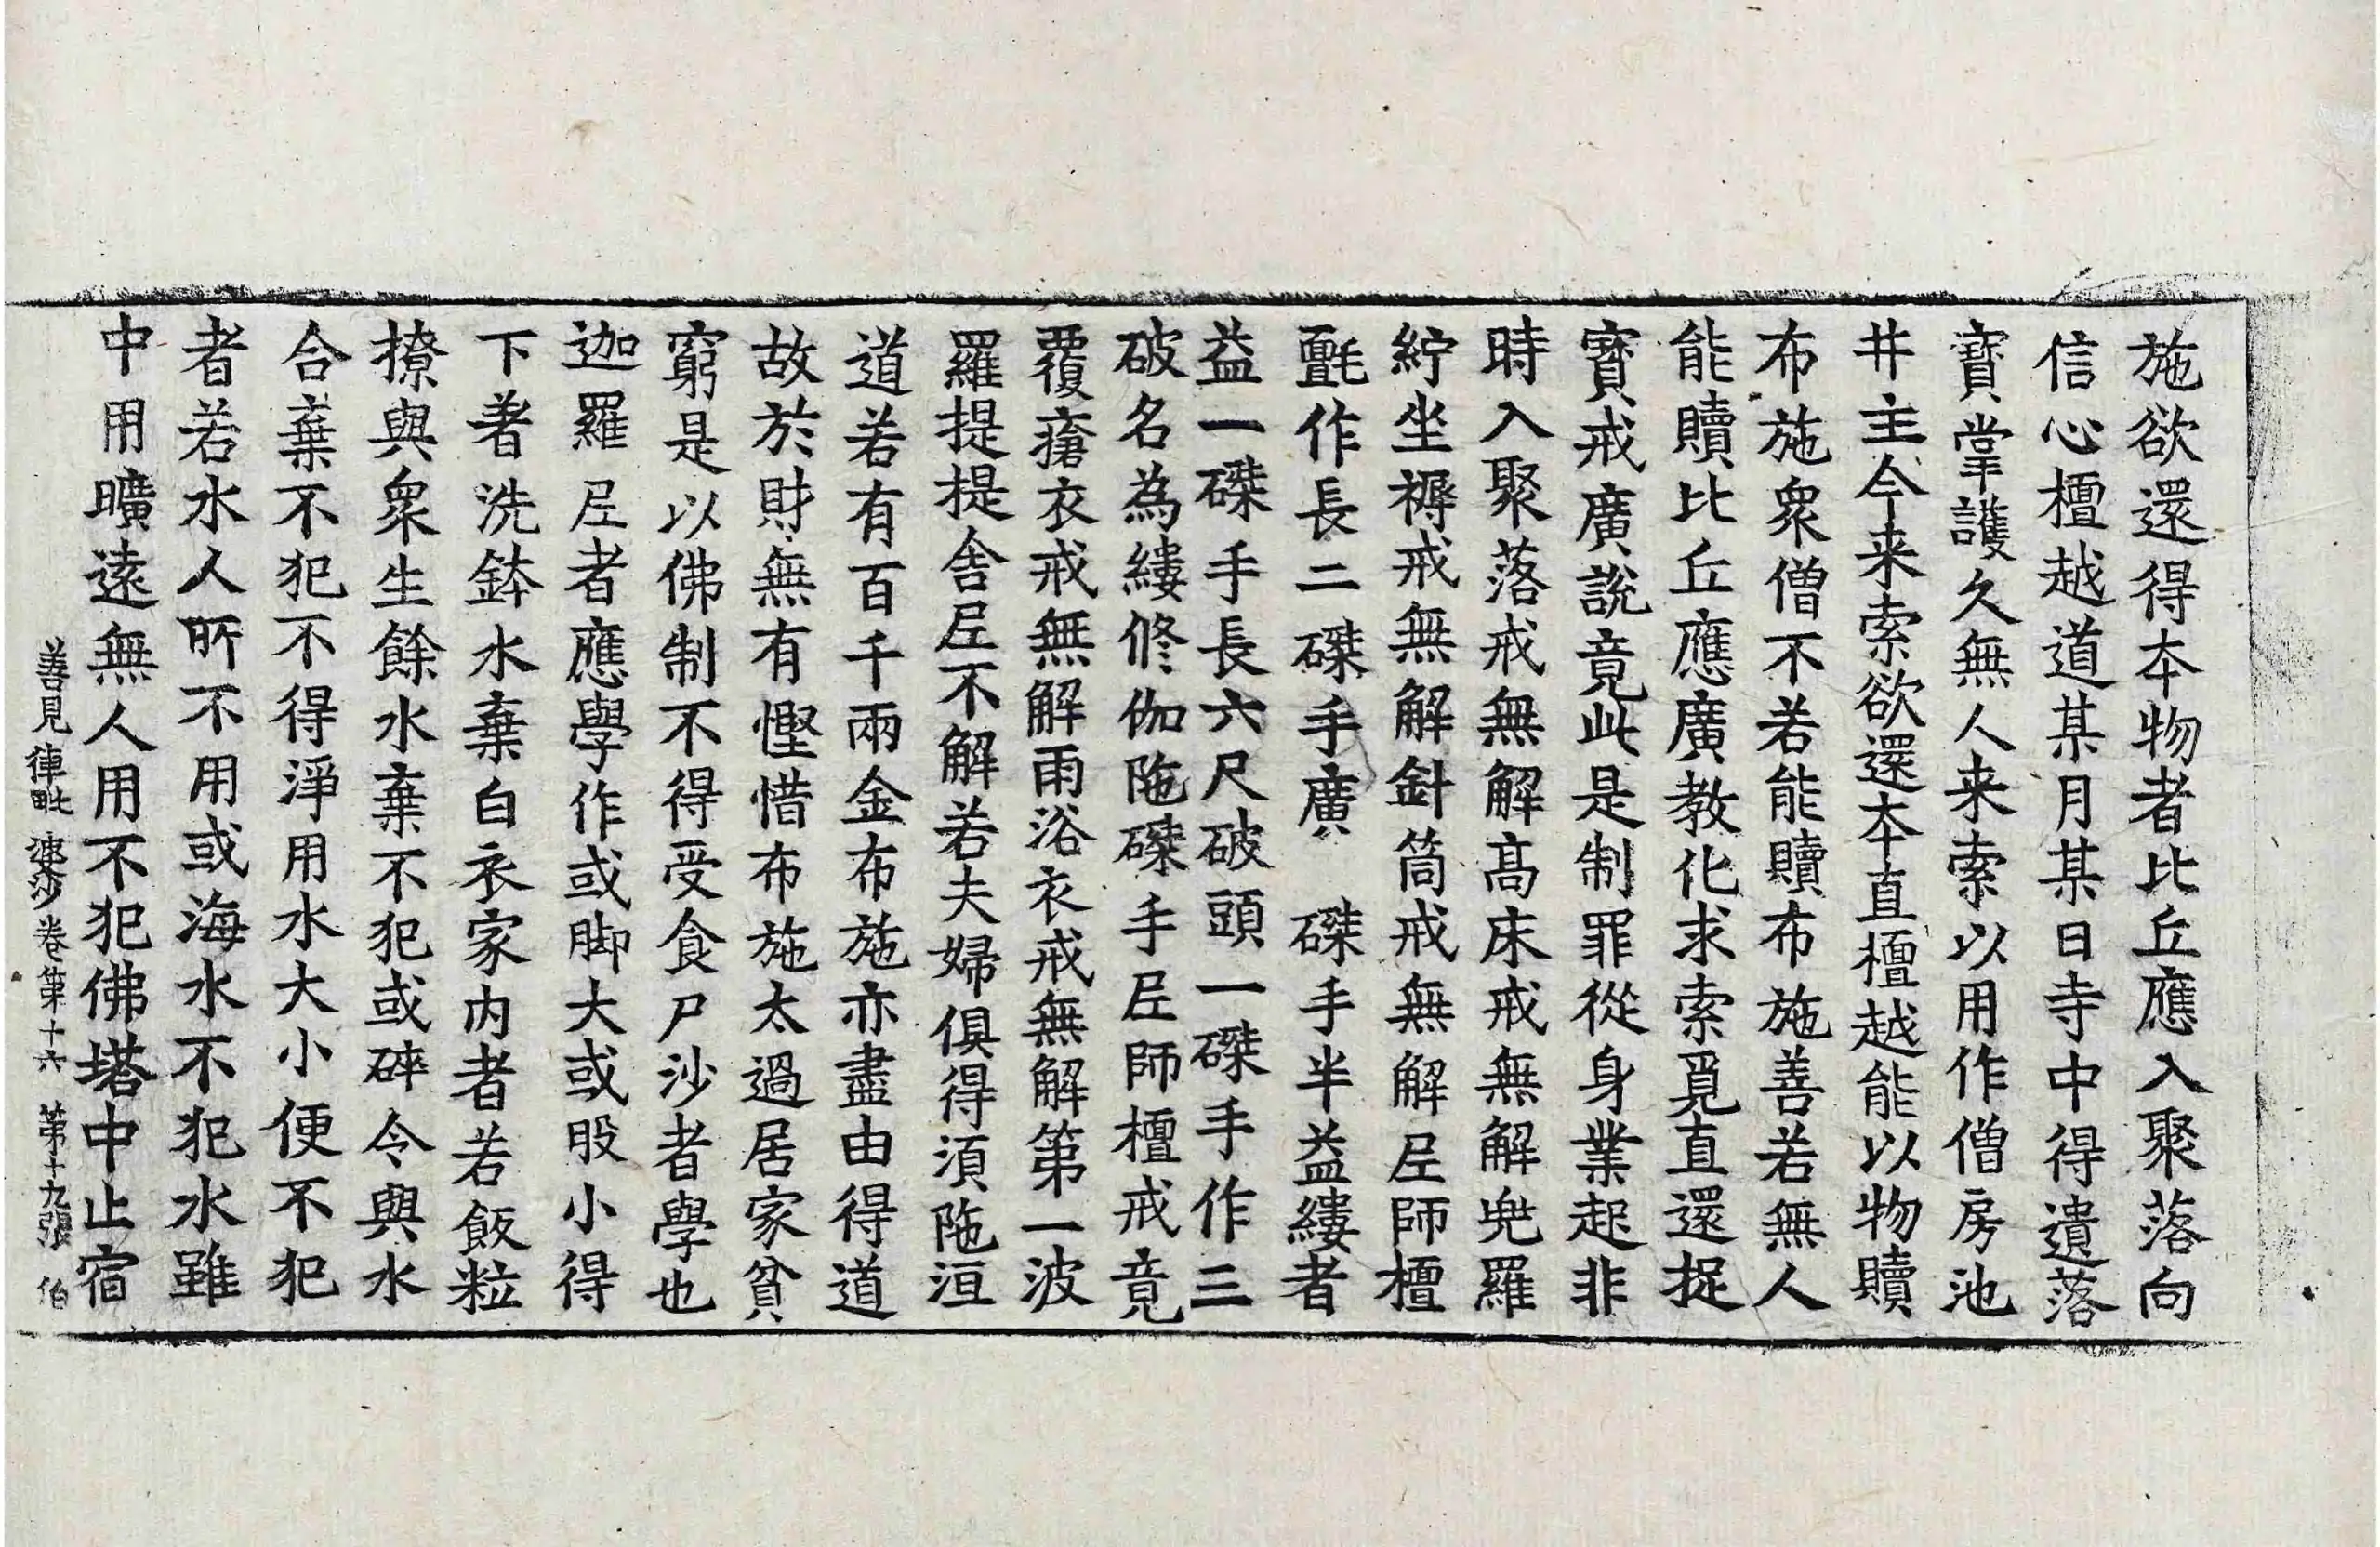 施欲還得本物者比丘應入聚落向
信心檀越道某月某日寺中得遺落
寶掌護久無人来索以用作僧房池
井主今来索欲還本直檀越能以物贖
布施衆僧不若能贖布施善若無人
能贖比丘應廣教化求索覓直還捉
寶戒廣說竟此是制罪從身業起非
時入聚落戒無解高床戒無解兜羅
紵坐褥戒無解針筒戒無解𡰱師檀
㲲作長二磔手廣 磔手半益縷者
益一磔手長六尺破頭一磔手作三
破名為縷修伽陁磔手𡰱師檀戒竟
覆瘡衣戒無解雨浴衣戒無解第一波
羅提提舎𡰱不解若夫婦俱得湏陁洹
道若有百千兩金布施亦盡由得道
故於財無有慳惜布施太過居家貧
窮是以佛制不得受食尸沙者學也
迦羅𡰱者應學作或脚大或股小得
下著洗鉢水棄白衣家内者若飯粒
撩與衆生餘水棄不犯或碎令與水
合棄不犯不得淨用水大小便不犯
者若水人所不用或海水不犯水雖
中用曠遠無人用不犯佛塔中止宿
善見律毗婆沙卷第十六 第十九張 伯